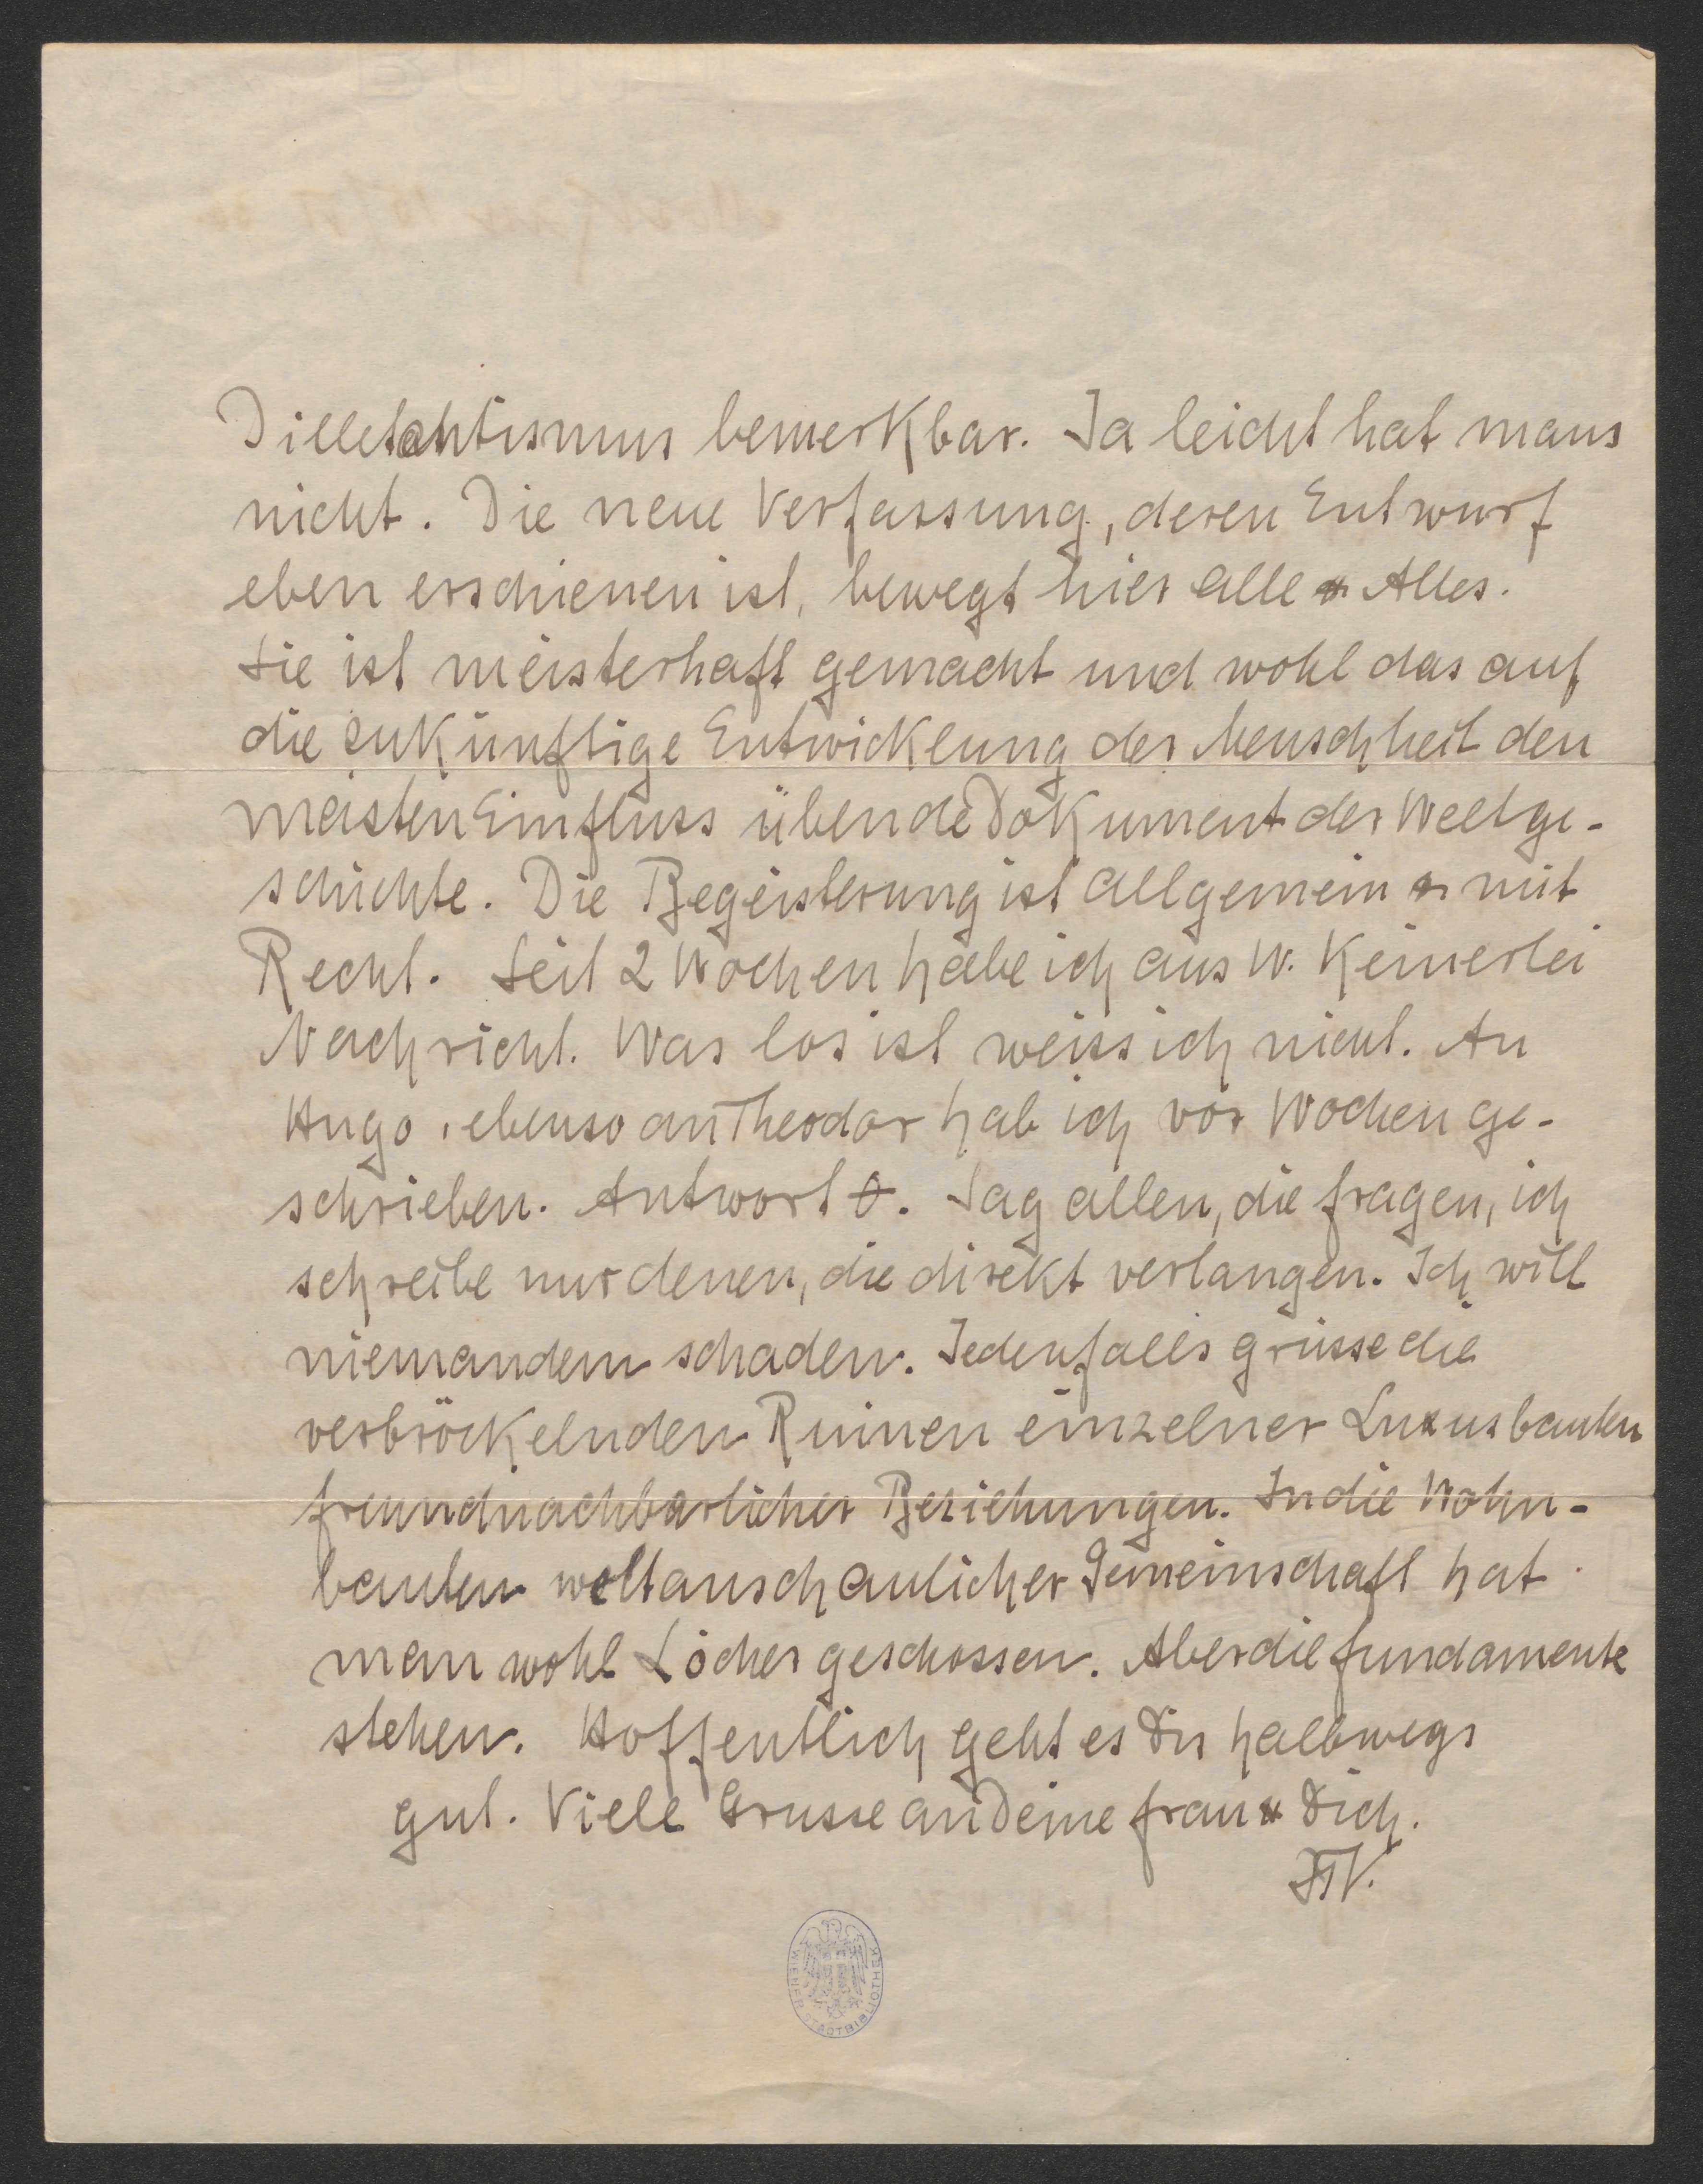 Dilletantismus bemerkbar. Ja leicht hat mans
nicht. Die neue Verfassung, deren Entwurf
eben erschienen ist, bewegt hier alle u Alles.
Sie ist meisterhaft gemacht und wohl das auf
die zukünftige Entwicklung der Menschheit den
meisten Einfluss übende Dokument der Weltge-
schichte. Die Begeisterung ist allgemein u mit
Recht. Seit 2 Wochen habe ich aus W. keinerlei
Nachricht. Was los ist weiss ich nicht. An
Hugo, ebenso an Theodor hab ich vor Wochen ge-
schrieben. Antwort 0. Sag allen, die fragen, ich
schreibe nur denen, die direkt verlangen. Ich will
niemandem schaden. Jedenfalls grüsse die
verbröckelnden Ruinen einzelner Luxusbauten
freundnachbarlicher Beziehungen. In die Wohn-
bauten weltanschaulicher Gemeinschaft hat
man wohl Löcher geschossen. Aber die Fundamente
stehen. Hoffentlich geht es Dir halbwegs
gut. Viele Grüsse an Deine Frau u Dich.
WIENER STADTBIBLIOTHEK